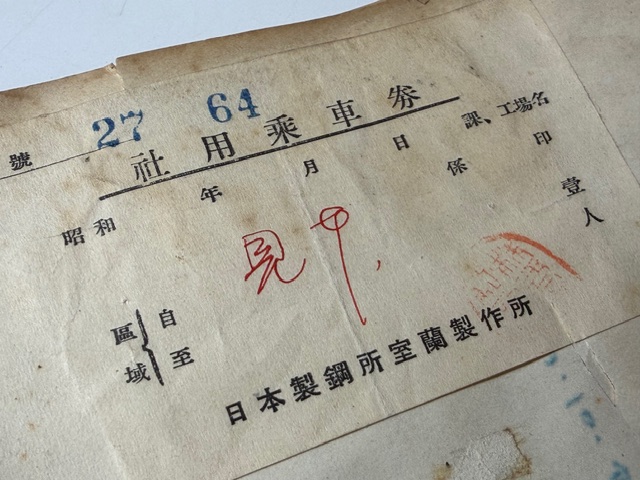 號 27 64
社用乗車券
課、工場名
昭和 年 月 日 係 印
壹人
見
區域 自 至
日本製鋼所室蘭製作所